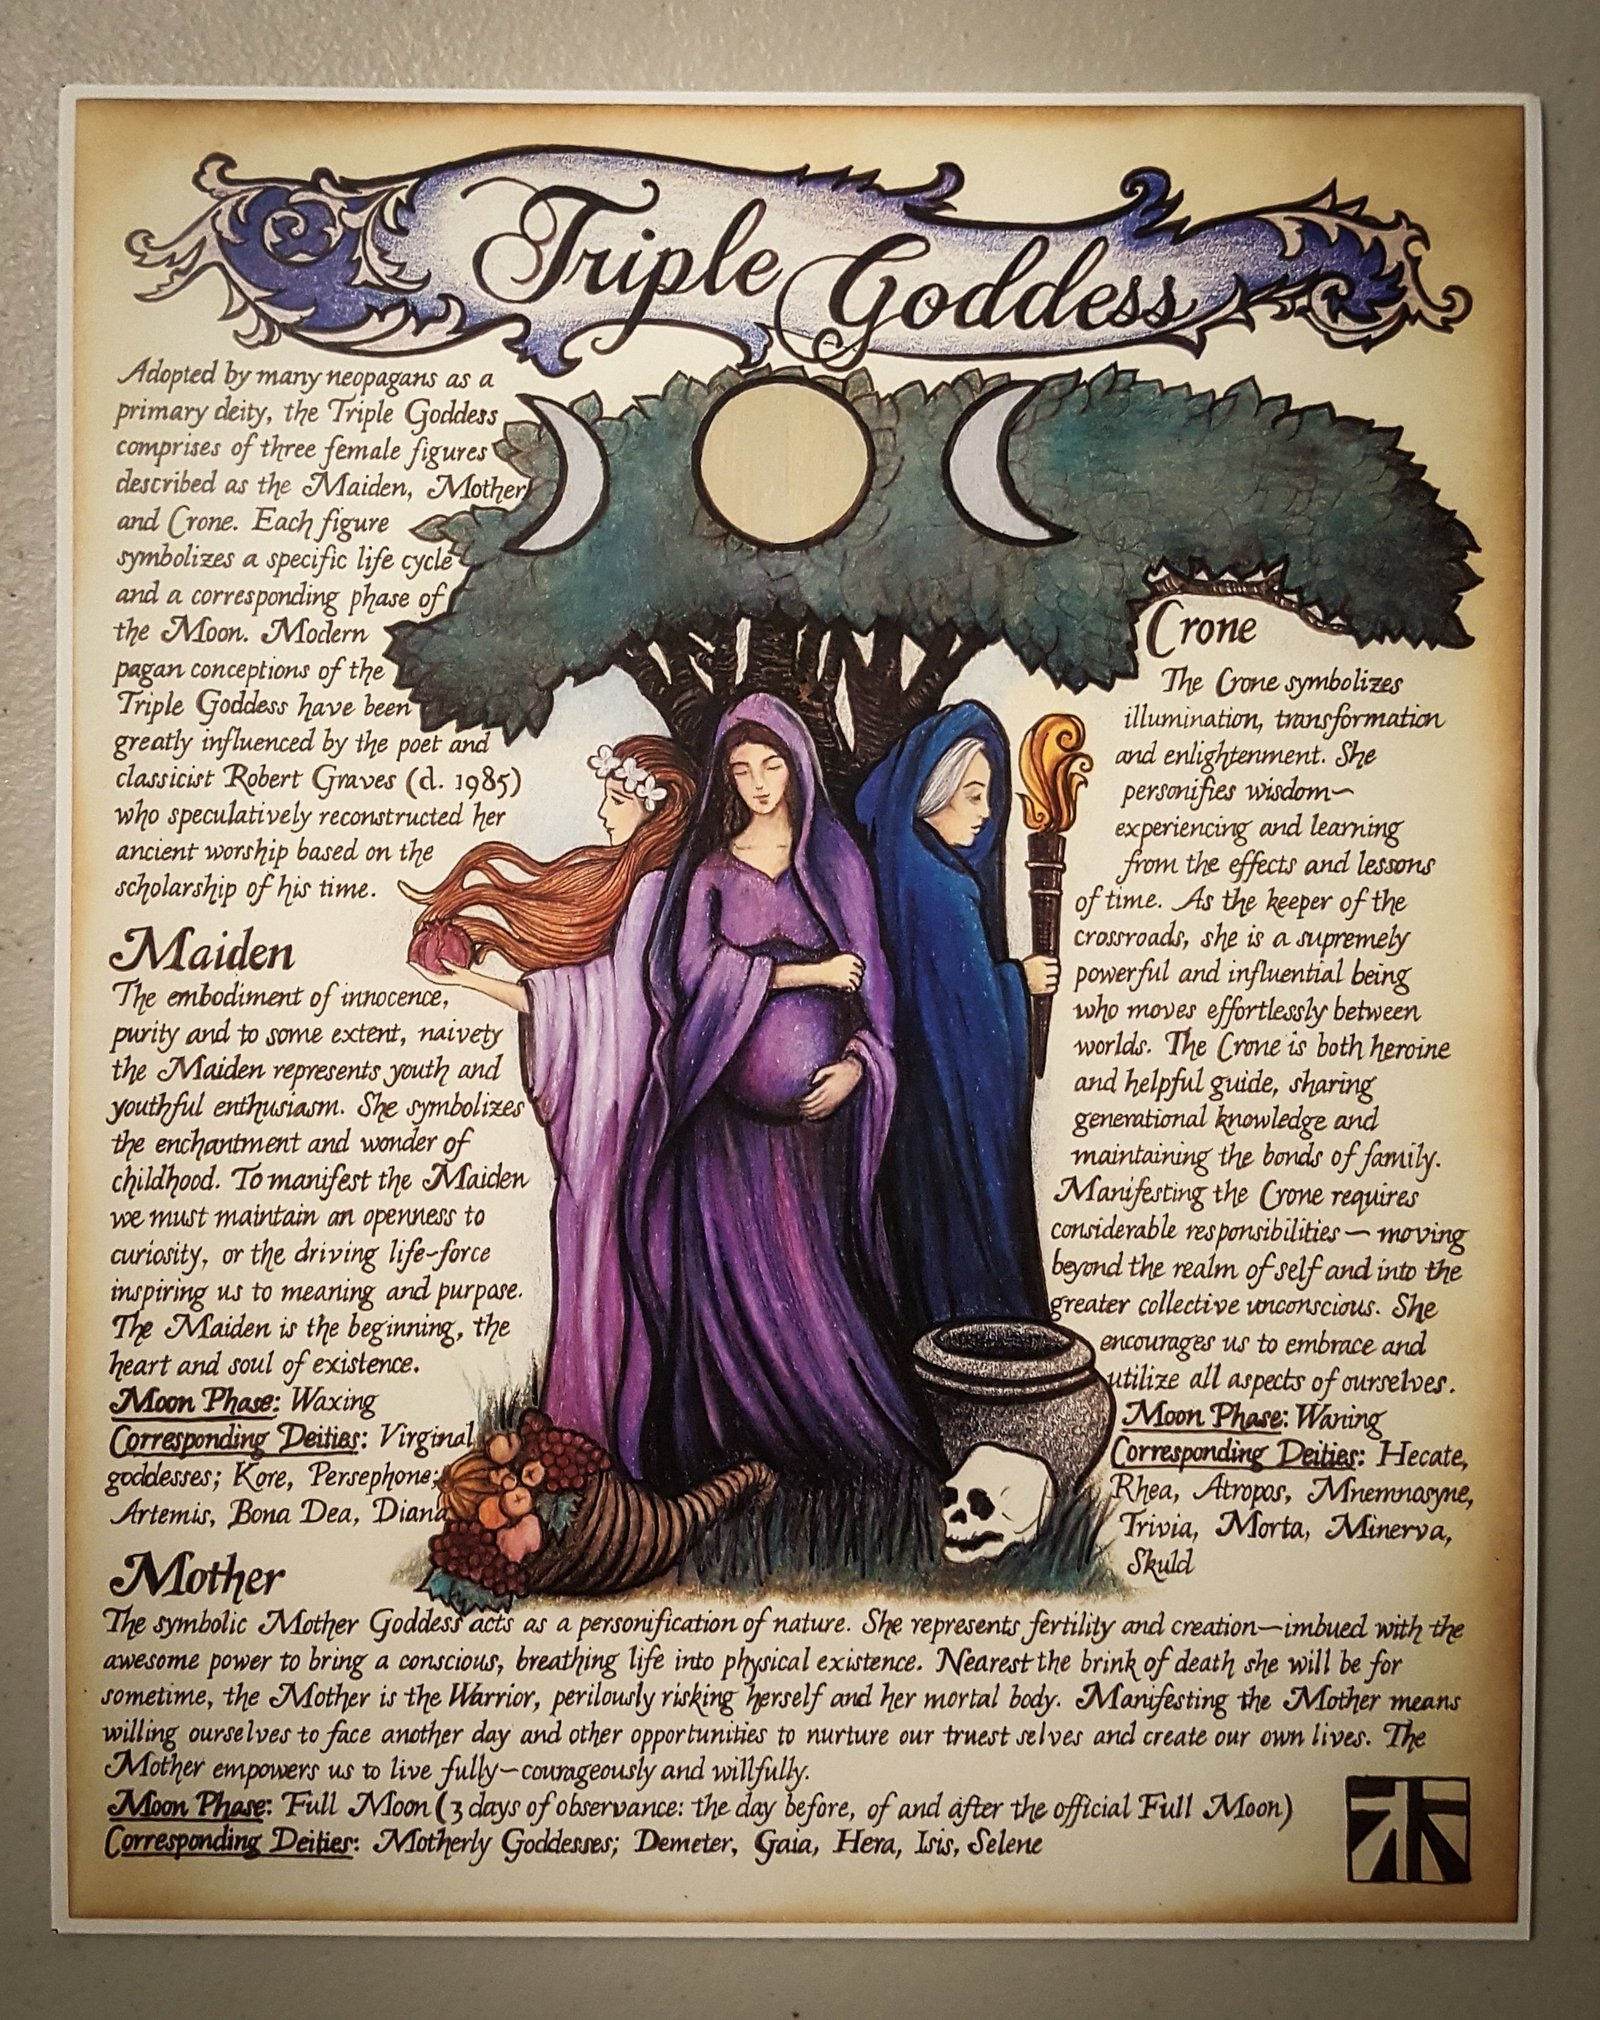 Triple Goddess
Adopted by many neopagans as a
primary deity, the Triple Goddess
comprises of three female figures
described as the Maiden, Mother
and Crone. Each figure
symbolizes a specific life cycle
and a corresponding phase of
the Moon. Modern
pagan conceptions of the
Triple Goddess have been
greatly influenced by the poet and
classicist Robert Graves (d. 1985)
who speculatively reconstructed her
ancient worship based on the
scholarship of his time.
Maiden
The embodiment of innocence,
purity and to some extent, naivety
the Maiden represents youth and
youthful enthusiasm. She symbolizes
the enchantment and wonder of
childhood. To manifest the Maiden
we must maintain an openness to
curiosity, or the driving life-force
inspiring us to meaning and purpose.
The Maiden is the beginning, the
heart and soul of existence.
Moon Phase: Waxing
Corresponding Deities: Virginal
goddesses; Kore, Persephone,
Artemis, Bona Dea, Diana
Crone
The Crone symbolizes
illumination, transformation
and enlightenment. She
personifies wisdom—
experiencing and learning
from the effects and lessons
of time. As the keeper of the
crossroads, she is a supremely
powerful and influential being
who moves effortlessly between
worlds. The Crone is both heroine
and helpful guide, sharing
generational knowledge and
maintaining the bonds of family.
Manifesting the Crone requires
considerable responsibilities — moving
beyond the realm of self and into the
greater collective unconscious. She
encourages us to embrace and
utilize all aspects of ourselves.
Moon Phase: Waning
Corresponding Deities: Hecate,
Rhea, Atropos, Mnemnosyne,
Trivia, Morta, Minerva,
Skuld
Mother
The symbolic Mother Goddess acts as a personification of nature. She represents fertility and creation—imbued with the
awesome power to bring a conscious, breathing life into physical existence. Nearest the brink of death she will be for
sometime, the Mother is the Warrior, perilously risking herself and her mortal body. Manifesting the Mother means
willing ourselves to face another day and other opportunities to nurture our truest selves and create our own lives. The
Mother empowers us to live fully—courageously and willfully.
Moon Phase: Full Moon (3 days of observance: the day before, of and after the official Full Moon)
Corresponding Deities: Motherly Goddesses; Demeter, Gaia, Hera, Isis, Selene